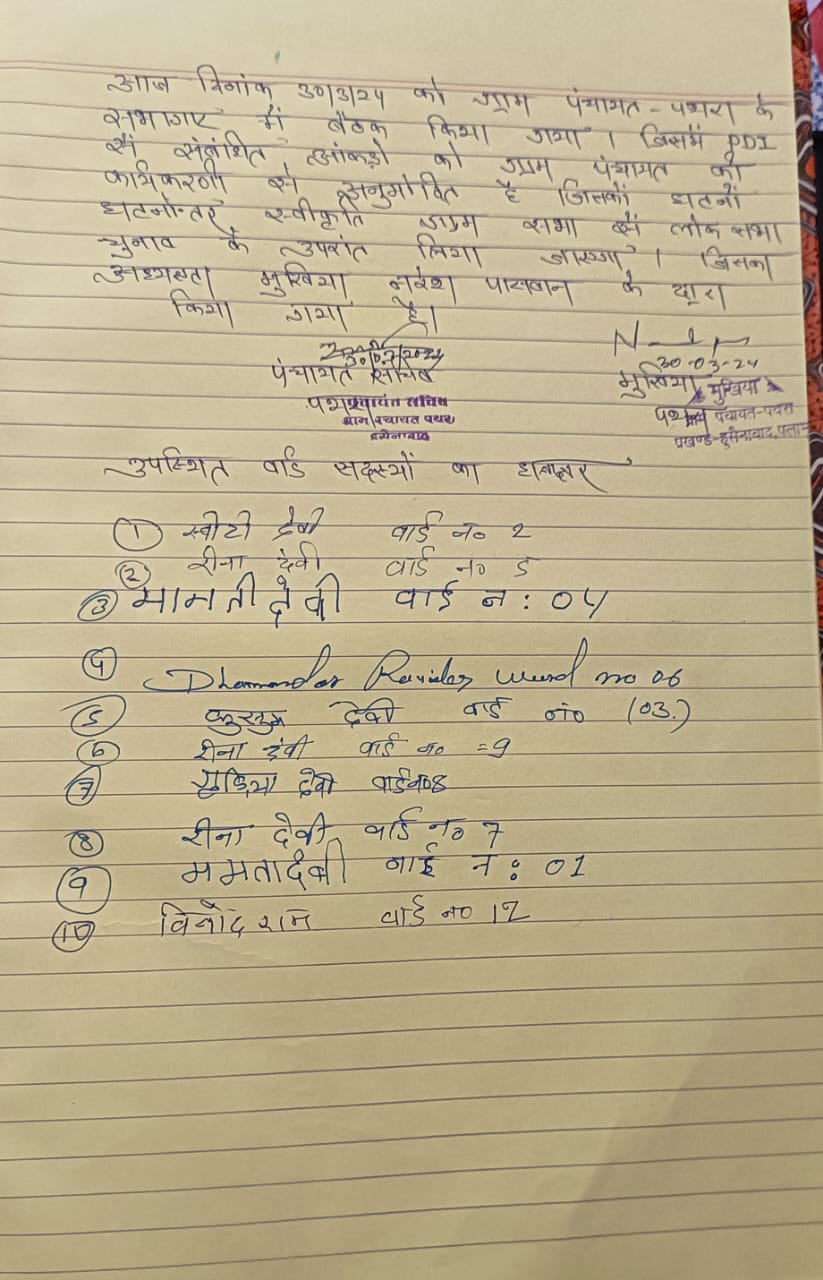 आज दिनांक 30/3/24 को ग्राम पंचायत - पथरा के
सभागार में बैठक किया गया । जिसमें PDI
से संबंधित आंकड़ो को ग्राम पंचायत की
कार्यकरणी से अनुमोदित है जिसकी घटनो
घटनोत्तर स्वीकृति ग्राम सभा से लोक सभा
चुनाव के उपरांत लिया जाएगा । जिसका
अध्यक्षता मुखिया नरेश पासवान के द्वारा
किया गया है।
पंचायत सचिव
पंचायत सचिव
ग्राम पंचायत पथरा
हुसैनाबाद
30-03-24
मुखिया
मुखिया
ग्राम पंचायत-पथरा
प्रखण्ड-हुसैनाबाद, पलामू
उपस्थित वार्ड सदस्यों का हस्ताक्षर
① स्वीटी देवी वार्ड न० 2
② रीना देवी वार्ड न० 5
③ मानती देवी वार्ड न : 04
④ Ward no 06
⑤ कुसुम देवी वार्ड नं० (03.)
⑥ रीना देवी वार्ड न० = 9
⑦ गुड़िया देवी वार्ड न० 8
⑧ रीना देवी वार्ड न० 7
⑨ ममता देवी वार्ड न : 01
⑩ विनोद राम वार्ड न० 12